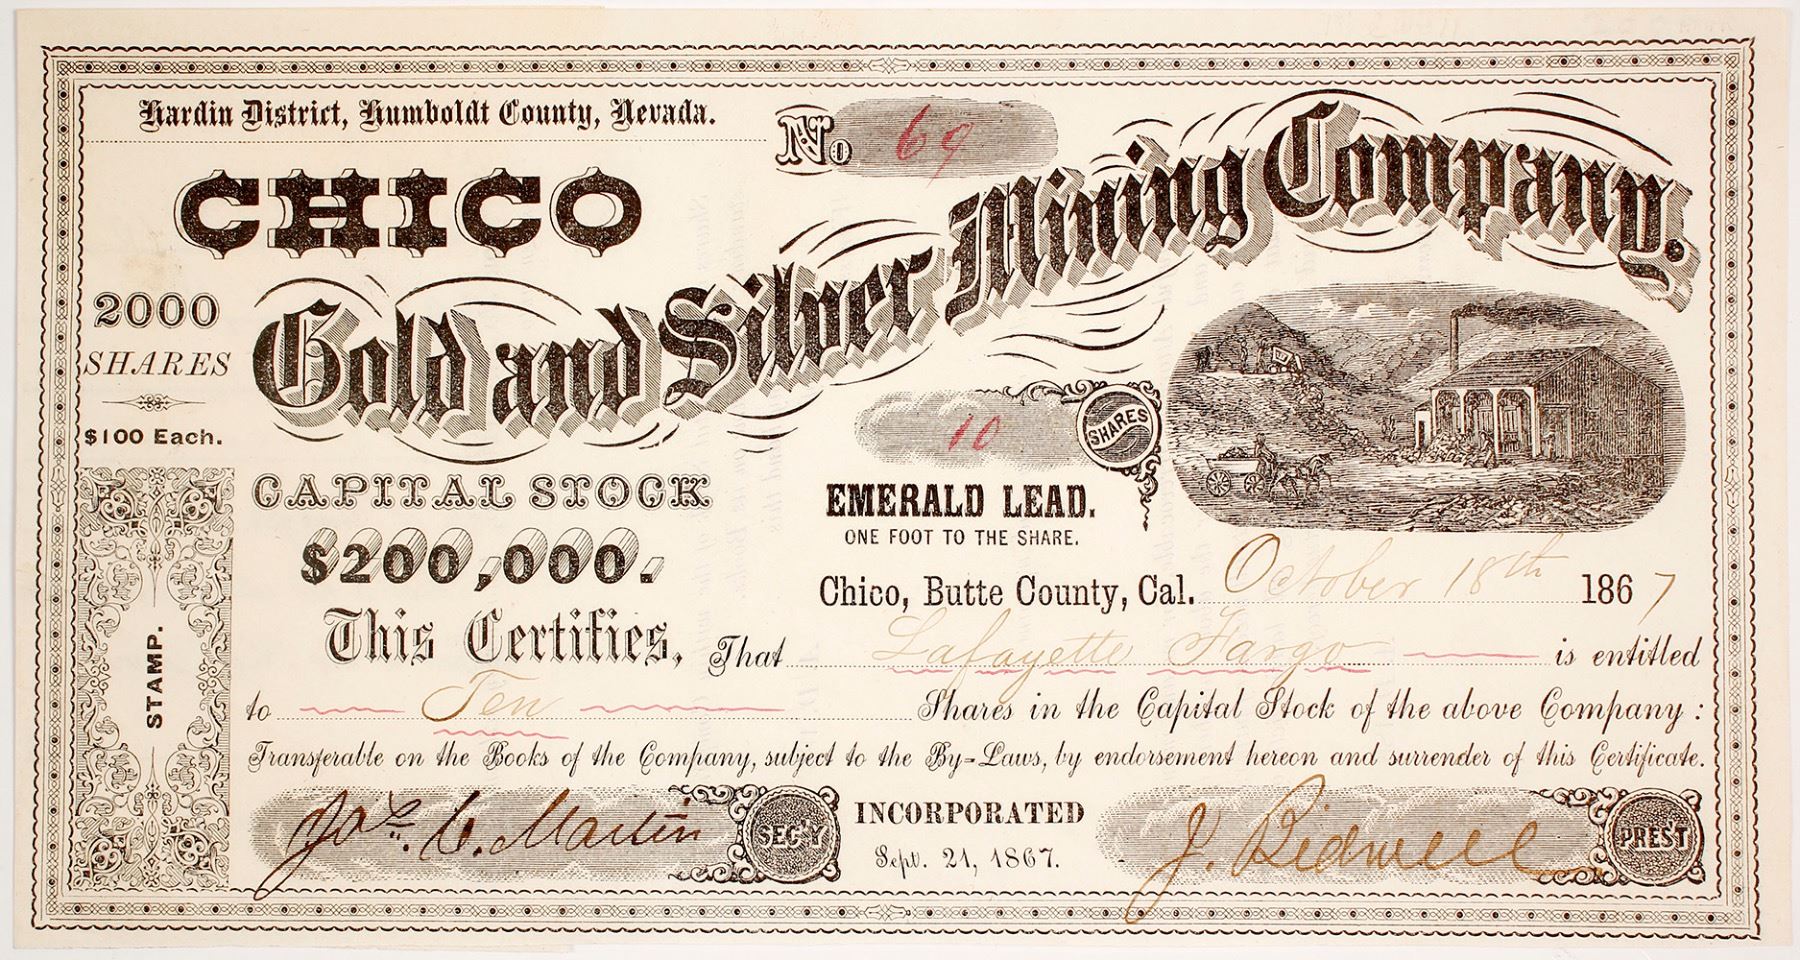 Hardin District, Humboldt County, Nevada.
No 69
CHICO
Gold and Silver Mining Company.
2000
SHARES
$100 Each.
10 SHARES
CAPITAL STOCK
$200,000.
EMERALD LEAD.
ONE FOOT TO THE SHARE.
Chico, Butte County, Cal. October 18th 1867
This Certifies, That Lafayette Fargo is entitled
to Ten Shares in the Capital Stock of the above Company:
Transferable on the Books of the Company, subject to the By-Laws, by endorsement hereon and surrender of this Certificate.
STAMP.
Jos. C. Martin SEC'Y
INCORPORATED
Sept. 21, 1867.
J. Bidwell PRES'T